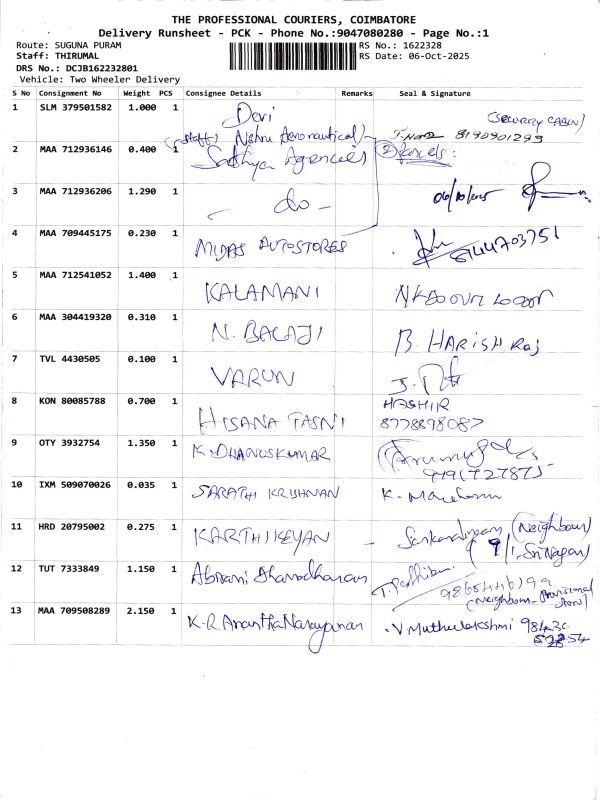 THE PROFESSIONAL COURIERS, COIMBATORE
Delivery Runsheet - PCK - Phone No.:9047080280 - Page No.:1
Route: SUGUNA PURAM
RS No.: 1622328
Staff: THIRUMAL
RS Date: 06-Oct-2025
DRS No.: DCJB162232801
Vehicle: Two Wheeler Delivery
S No Consignment No Weight PCS Consignee Details Remarks Seal & Signature
1 SLM 379501582 1.000 1 Devi (Security Cabin)
(Staff) Nehru Aeronautical) 8190901293
2 MAA 712936146 0.400 1 Sathya Agencies (2) Parcels:
3 MAA 712936206 1.290 1 - do - 06/10/2025
4 MAA 709445175 0.230 1 MIDAS AUTOSTORES
5 MAA 712541052 1.400 1 KALAMANI
6 MAA 304419320 0.310 1 N. BALAJI B. HARISH Raj
7 TVL 4430505 0.100 1 VARUN
8 KON 80085788 0.700 1 HISANA TASNI HASHIR
8778898087
9 OTY 3932754 1.350 1 K. DHANUSKUMAR
10 IXM 509070026 0.035 1 SARATHI KRISHNAN
11 HRD 20795002 0.275 1 KARTHIKEYAN (Neighbour)
9/1, Sri Nagar)
12 TUT 7333849 1.150 1 Abirami Dhamodharan
(Neighbour - Provisional Store)
13 MAA 709508289 2.150 1 K.R. Anantha Narayanan V Muthulakshmi